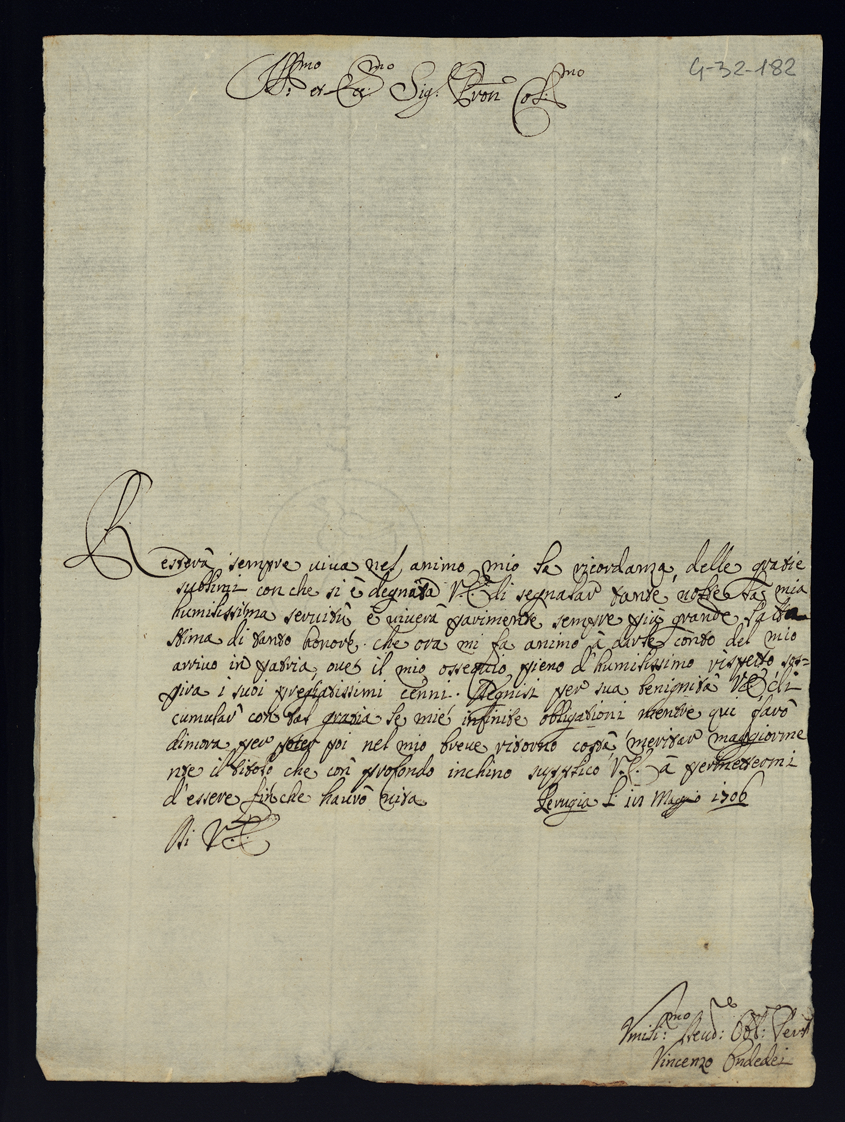 G-32-182
Ill.mo et Ecc.mo Sig.r Pron Col.mo
Resterà sempre viua nel animo mio la ricordanza delle gratie
sublimi con che si è degnata V.E. di segnalar tante uolte la mia
humilissima seruitù e uiuerà parimente sempre più grande la
stima di tanto honore che ora mi fa animo à darle conto del mio
arriuo in patria, oue il mio ossequio pieno d'humilissimo rispetto, sos=
pira i suoi pregiatissimi cenni. Degnisi per sua benignità V.E. di
cumular con tal gratia le mie infinite obligationi mentre qui farò
dimora per poter poi nel mio breue ritorno costà meritar maggiorme
nte il titolo che con profondo inchino supplico V.E. à permettermi
d'essere fin che haurò uita Perugia li in Maggio 1706
Di V.E.
Vmilis.mo Deuo: Obl: Seru
Vincenzo Ondedei